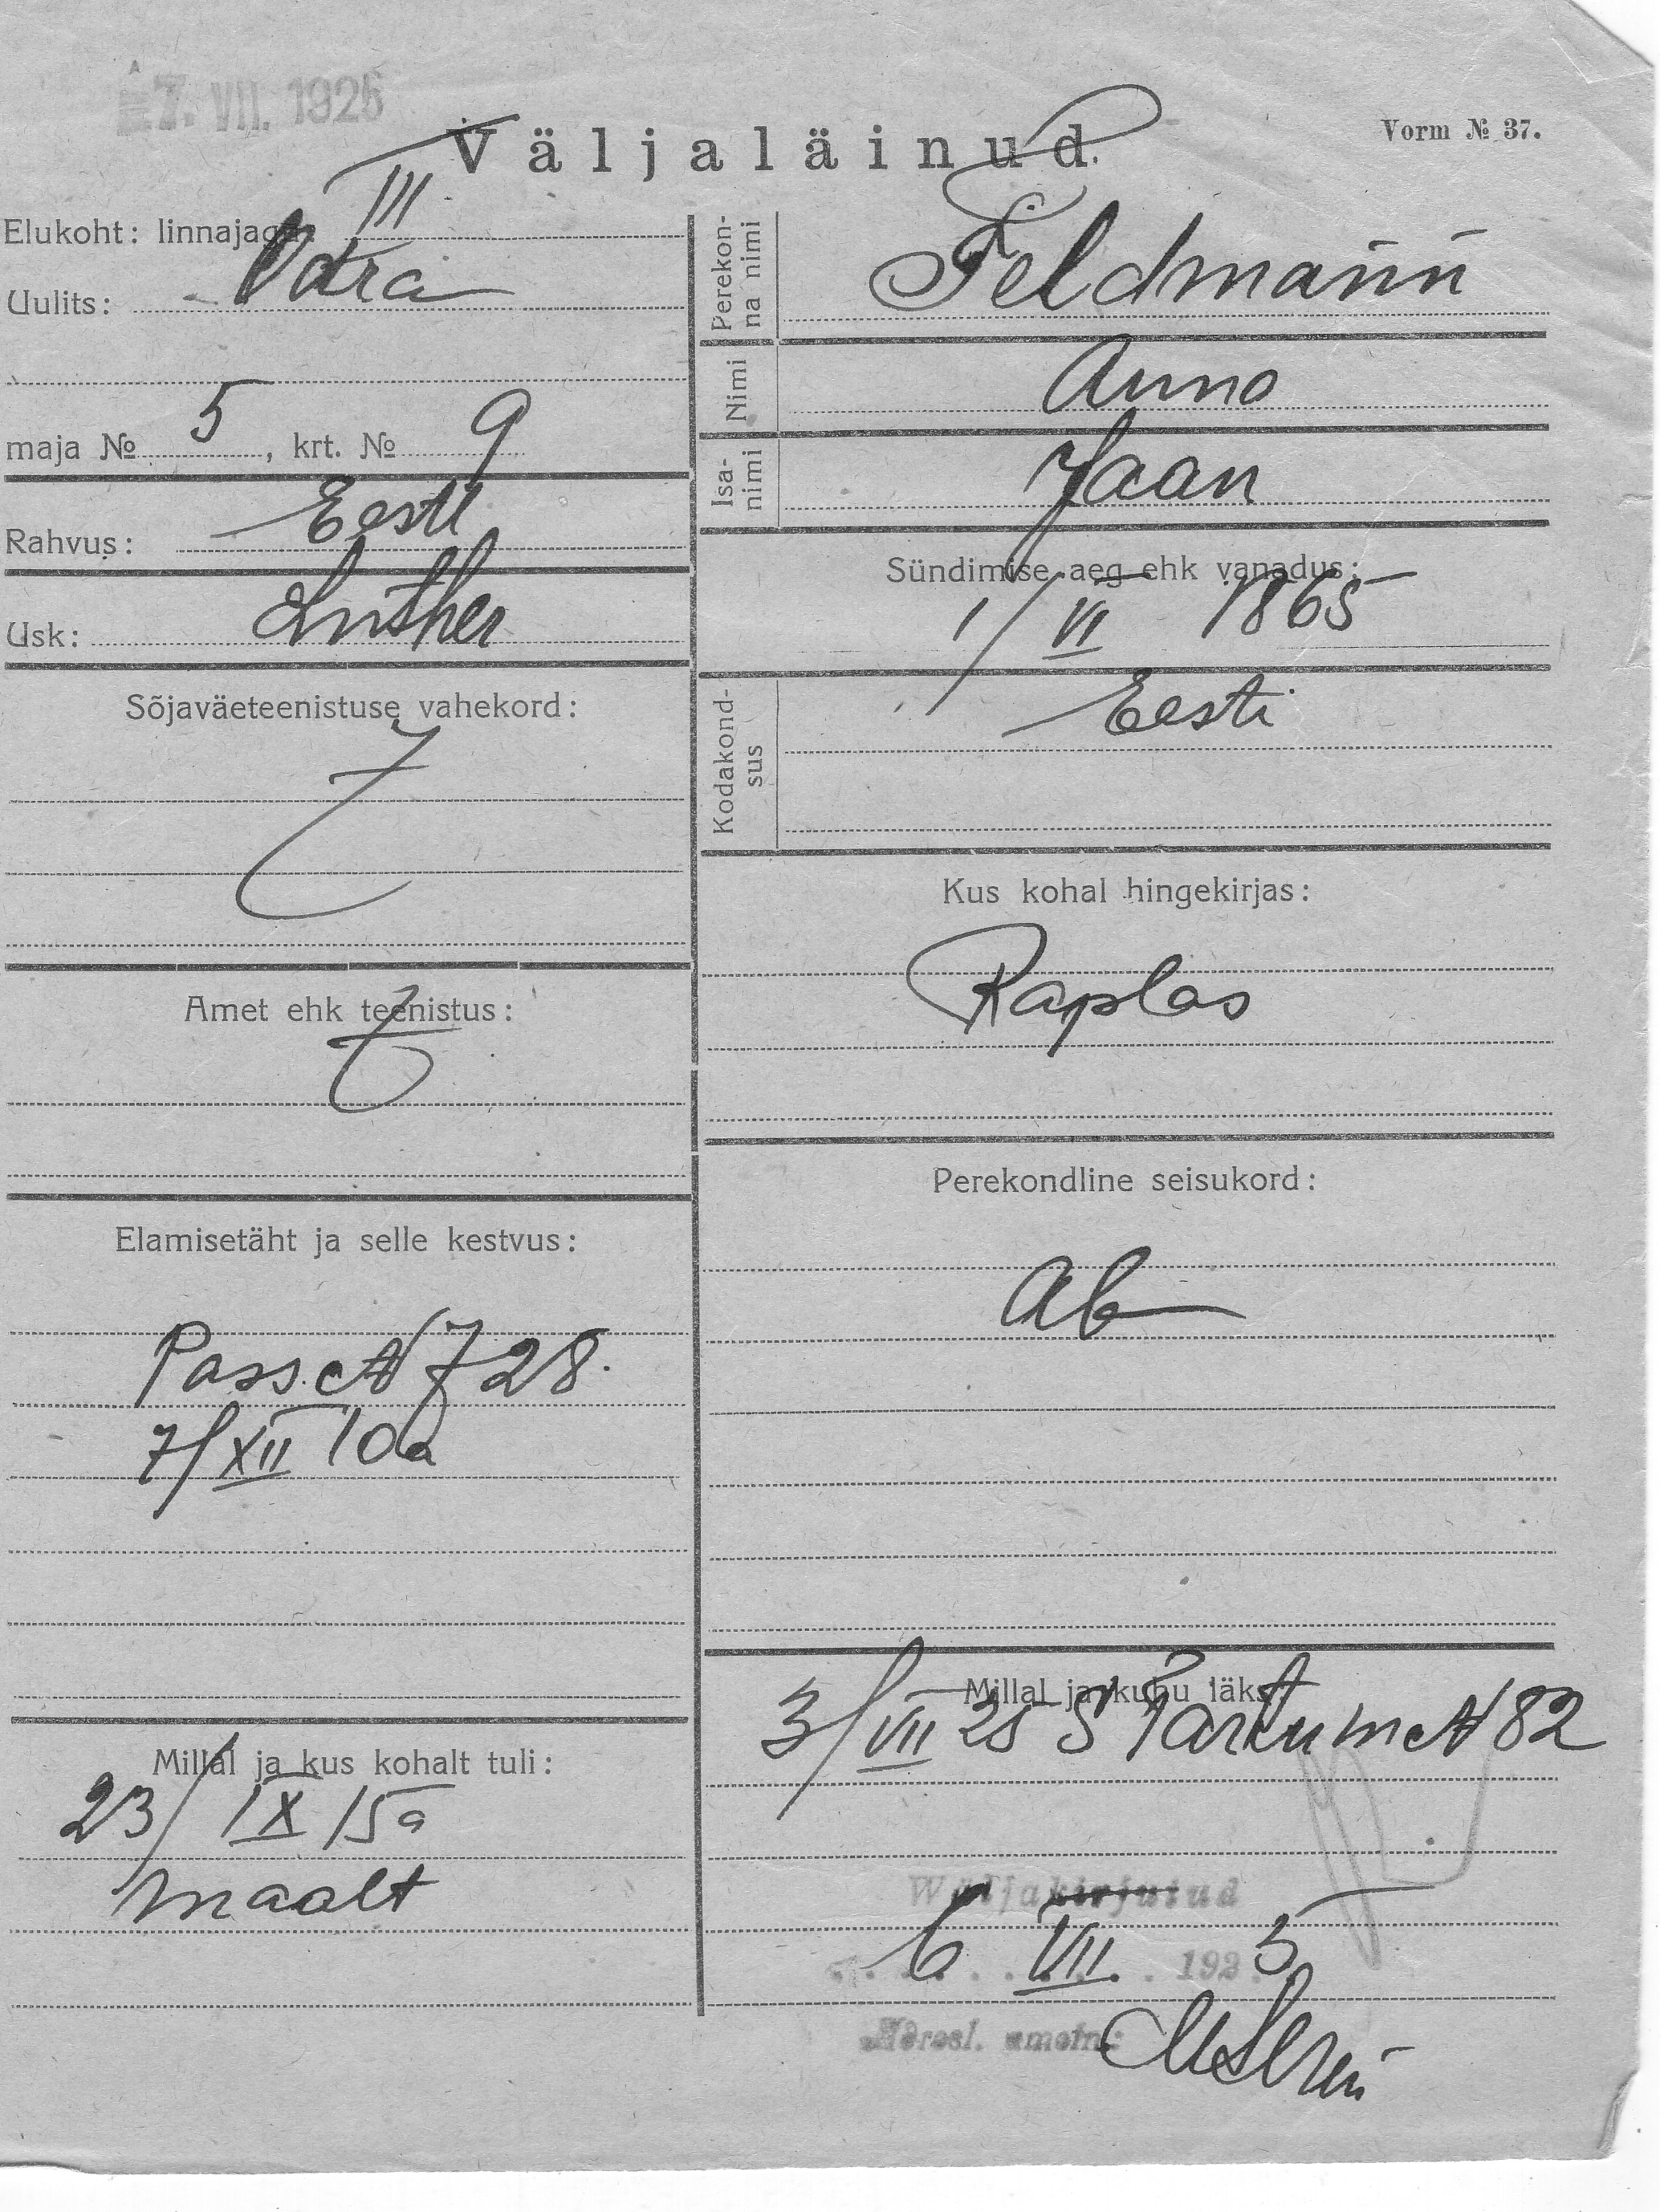 7. VII. 1925
Väljaläinud.
Vorm № 37.
Elukoht: linnajagu III
Uulits: Odra
maja № 5, krt. № 9
Rahvus: Eesti
Usk: Luther
Sõjaväeteenistuse vahekord:
Amet ehk teenistus:
Elamisetäht ja selle kestvus:
Pass. № 728.
7/XII 10a
Millal ja kus kohalt tuli:
23/IX 15a
maalt
Perekonna nimi
Feldmann
Nimi
Anna
Isanimi
Jaan
Sündimise aeg ehk vanadus:
1/VI 1865
Kodakondsus
Eesti
Kus kohal hingekirjas:
Raplas
Perekondline seisukord:
Ab
Millal ja kuhu läks:
3/VII 25 S Partu m № 82
Wäljakirjutud
6 VII. 1925
Adresl. ametn: